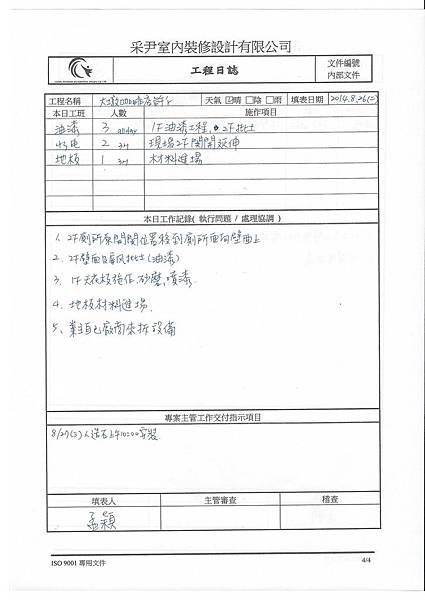 采尹室內裝修設計有限公司
工程日誌
文件編號
內部文件
工程名稱 天氣 ☑晴 □陰 □雨 填表日期 2014.8.26(二)
本日工班 人數 施作項目
油漆 3 allday 1F油漆工程, 2F批土
水電 2 現場2F開關延伸
地板 1 材料進場
本日工作記錄( 執行問題 / 處理協調 )
1. 2F廁所原開關位置移到廁所面向壁面上
2. 2F壁面及屏风批土(油漆)
3. 1F天花板施作砂磨,噴漆.
4. 地板材料進場.
5、業主自己廠商來拆設備
專案主管工作交付指示項目
8/27(三)人造石上午10:00安裝
填表人 主管審查 稽查
孟穎
ISO 9001 專用文件 4/4